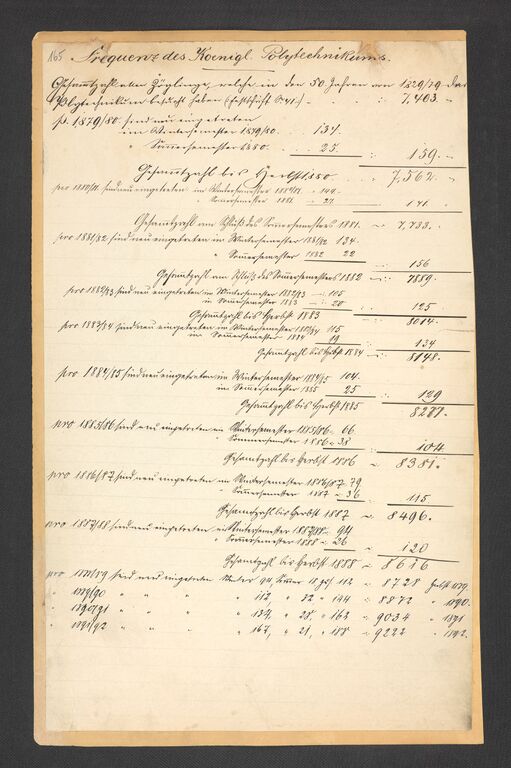 165 Frequenz des Koenigl. Polytechnikums.
Gesammtzahl aller Zöglinge, welche in den 50 Jahren von 1829/79 das
Polytechnikum besucht haben (Festschrift S. 41.) - 7,403.-
p. 1879/80. sind neu eingetreten
im Wintersemester 1879/80. . . 134.
" Sommersemester 1880. . . 25. . 159.-
Gesammtzahl bis Herbst 1880 . 7,562.-
pro 1880/81. sind neu eingetreten im Wintersemester 1880/81. - 144.
" Sommersemester 1881. - 27. 171.
Gesammtzahl am Schluß des Sommersemesters 1881. - 7,733.-
pro 1881/82. sind neu eingetreten im Wintersemester 1881/82 134.
" Sommersemester 1882 22 156
Gesammtzahl am Schluß des Sommersemesters 1882 7889.
pro 1882/83 sind neu eingetreten im Wintersemester 1882/83 - 105
im Sommersemester 1883 - 20 125
Gesammtzahl bis Herbst 1883 8014.
pro 1883/84 sind neu eingetreten im Wintersemester 1883/84 115
im Sommersemester 1884 19 134
Gesammtzahl bis Herbst 1884 - 8148.
pro 1884/85 sind neu eingetreten im Wintersemester 1884/85 104.
im Sommersemester 1885 25 129
Gesammtzahl bis Herbst 1885 8277.
pro 1885/86 sind neu eingetreten im Wintersemester 1885/86. 66.
" Sommersemester 1886 38 104.
Gesammtzahl bis Herbst 1886 8381.
pro 1886/87 sind neu eingetreten im Wintersemester 1886/87. 79
" Sommersemester 1887 - 36 115
Gesammtzahl bis Herbst 1887 8496.
pro 1887/88 sind neu eingetreten im Wintersemester 1887/88 - 94
" Sommersemester 1888 - 26 120
Gesammtzahl bis Herbst 1888 - 8616
pro 1888/89 sind neu eingetreten Winter 94, Sommer 18, 112 8728 Herbst 1889.
" 1889/90 " " " " 112, " 32 144 8872 " 1890.
" 1890/91 " " " " 134, " 28, 162 9034 " 1891
" 1891/92 " " " " 167, " 21, 188 9222 " 1892.